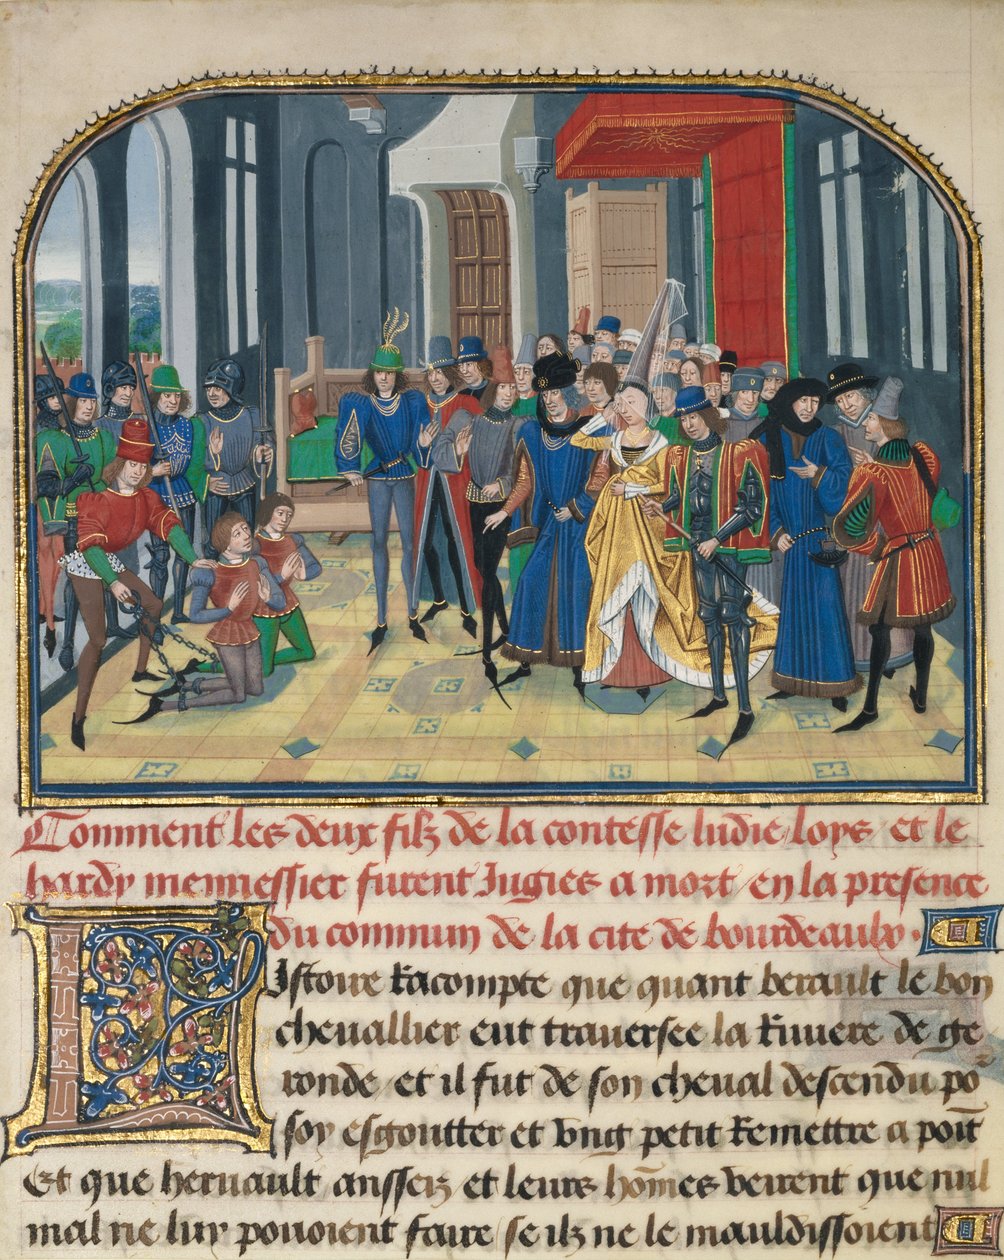 Comment les deux filz de la contesse ludie / loys / et le
hardy mennessier furent Jugies a mort / en la presence
du commun de la cite de bourdeaulx.
Listoire Racompte que quant berault le bon
chevallier eut traversee la Riviere de ge
ronde / et il fut de son cheval descendu po᷑
soy esgoutter et ung petit Remettre a poīt
Et que hernault ansseis et leurs hōmes veirent que nul
mal ne luy povoient faire / se ilz ne le mauldissoient